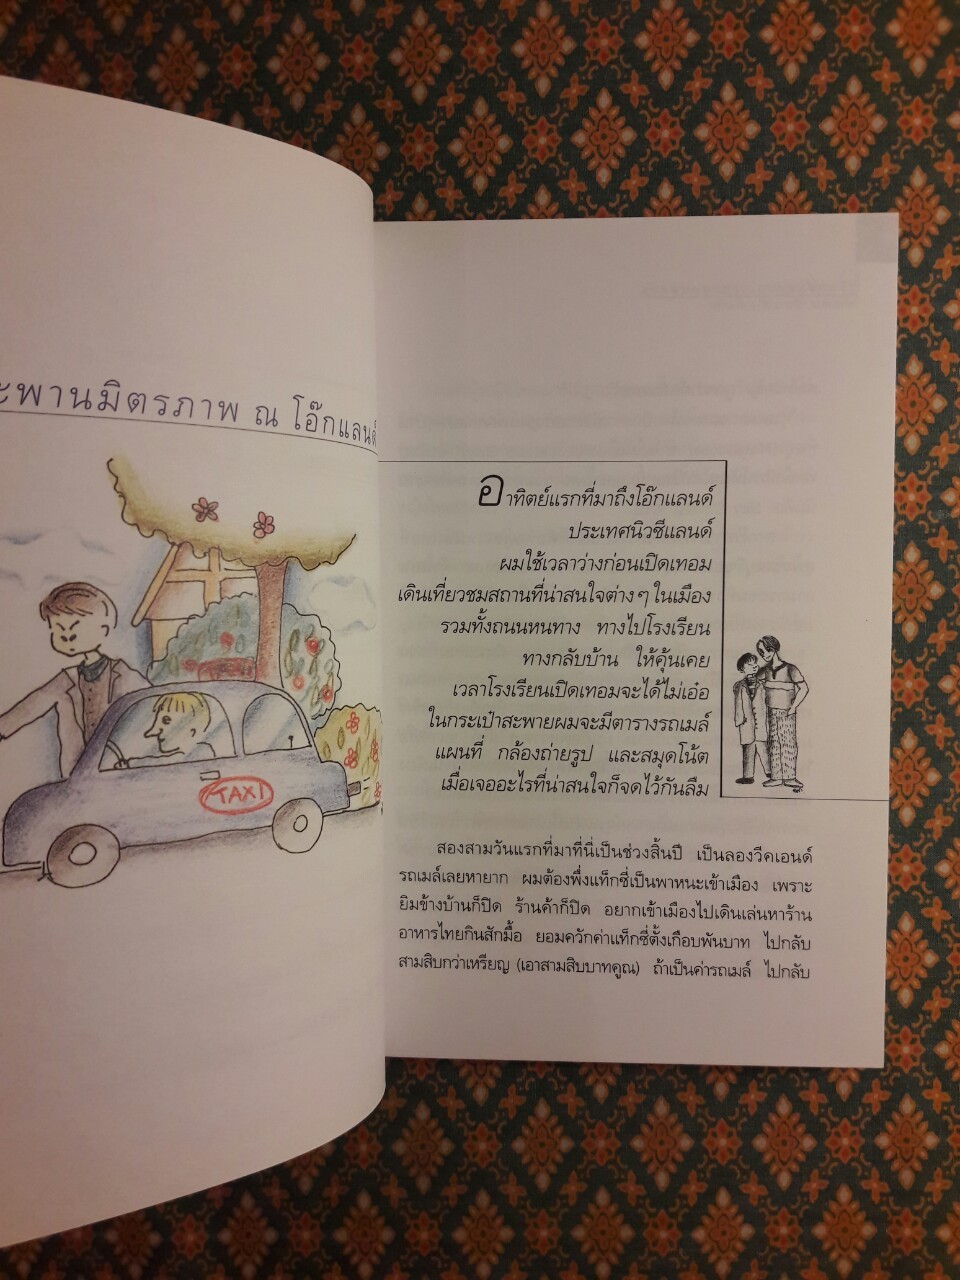 ะพานมิตรภาพ ณ โอ๊กแลนด์
TAXI
อาทิตย์แรกที่มาถึงโอ๊กแลนด์
ประเทศนิวซีแลนด์
ผมใช้เวลาว่างก่อนเปิดเทอม
เดินเที่ยวชมสถานที่น่าสนใจต่าง ๆ ในเมือง
รวมทั้งถนนหนทาง ทางไปโรงเรียน
ทางกลับบ้าน ให้คุ้นเคย
เวลาโรงเรียนเปิดเทอมจะได้ไม่เอ๋อ
ในกระเป๋าสะพายผมจะมีตารางรถเมล์
แผนที่ กล้องถ่ายรูป และสมุดโน้ต
เมื่อเจออะไรที่น่าสนใจก็จดไว้กันลืม
สองสามวันแรกที่มาที่นี่เป็นช่วงสิ้นปี เป็นลองวีคเอนด์
รถเมล์เลยหายาก ผมต้องพึ่งแท็กซี่เป็นพาหนะเข้าเมือง เพราะ
ยิมข้างบ้านก็ปิด ร้านค้าก็ปิด อยากเข้าเมืองไปเดินเล่นหาร้าน
อาหารไทยกินสักมื้อ ยอมควักค่าแท็กซี่ตั้งเกือบพันบาท ไปกลับ
สามสิบกว่าเหรียญ (เอาสามสิบบาทคูณ) ถ้าเป็นค่ารถเมล์ ไปกลับ